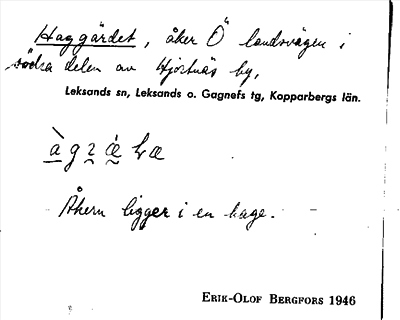 Haggärdet, åker Ö landsvägen i
södra delen av Hjortnäs by,
Leksands sn, Leksands o. Gagnefs tg, Kopparbergs län.
Åkern ligger i en hage.
Erik-Olof Bergfors 1946